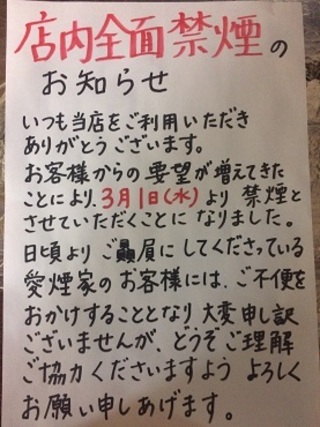 店内全面禁煙の
お知らせ
いつも当店をご利用いただき
ありがとうございます。
お客様からの要望が増えてきた
ことにより、3月1日(水)より禁煙と
させていただくことになりました。
日頃よりご贔屓にしてくださっている
愛煙家のお客様には、ご不便を
おかけすることとなり大変申し訳
ございませんが、どうぞご理解
ご協力くださいますようよろしく
お願い申しあげます。